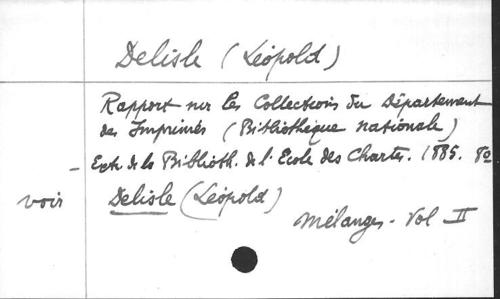 Delisle (Léopold)
Rapport sur les Collections du Département
des Imprimés (Bibliothèque nationale)
- Extr. de la Biblioth. de l'Ecole des Chartes. 1885. 8o
voir Delisle (Léopold)
Mélanges - Vol II